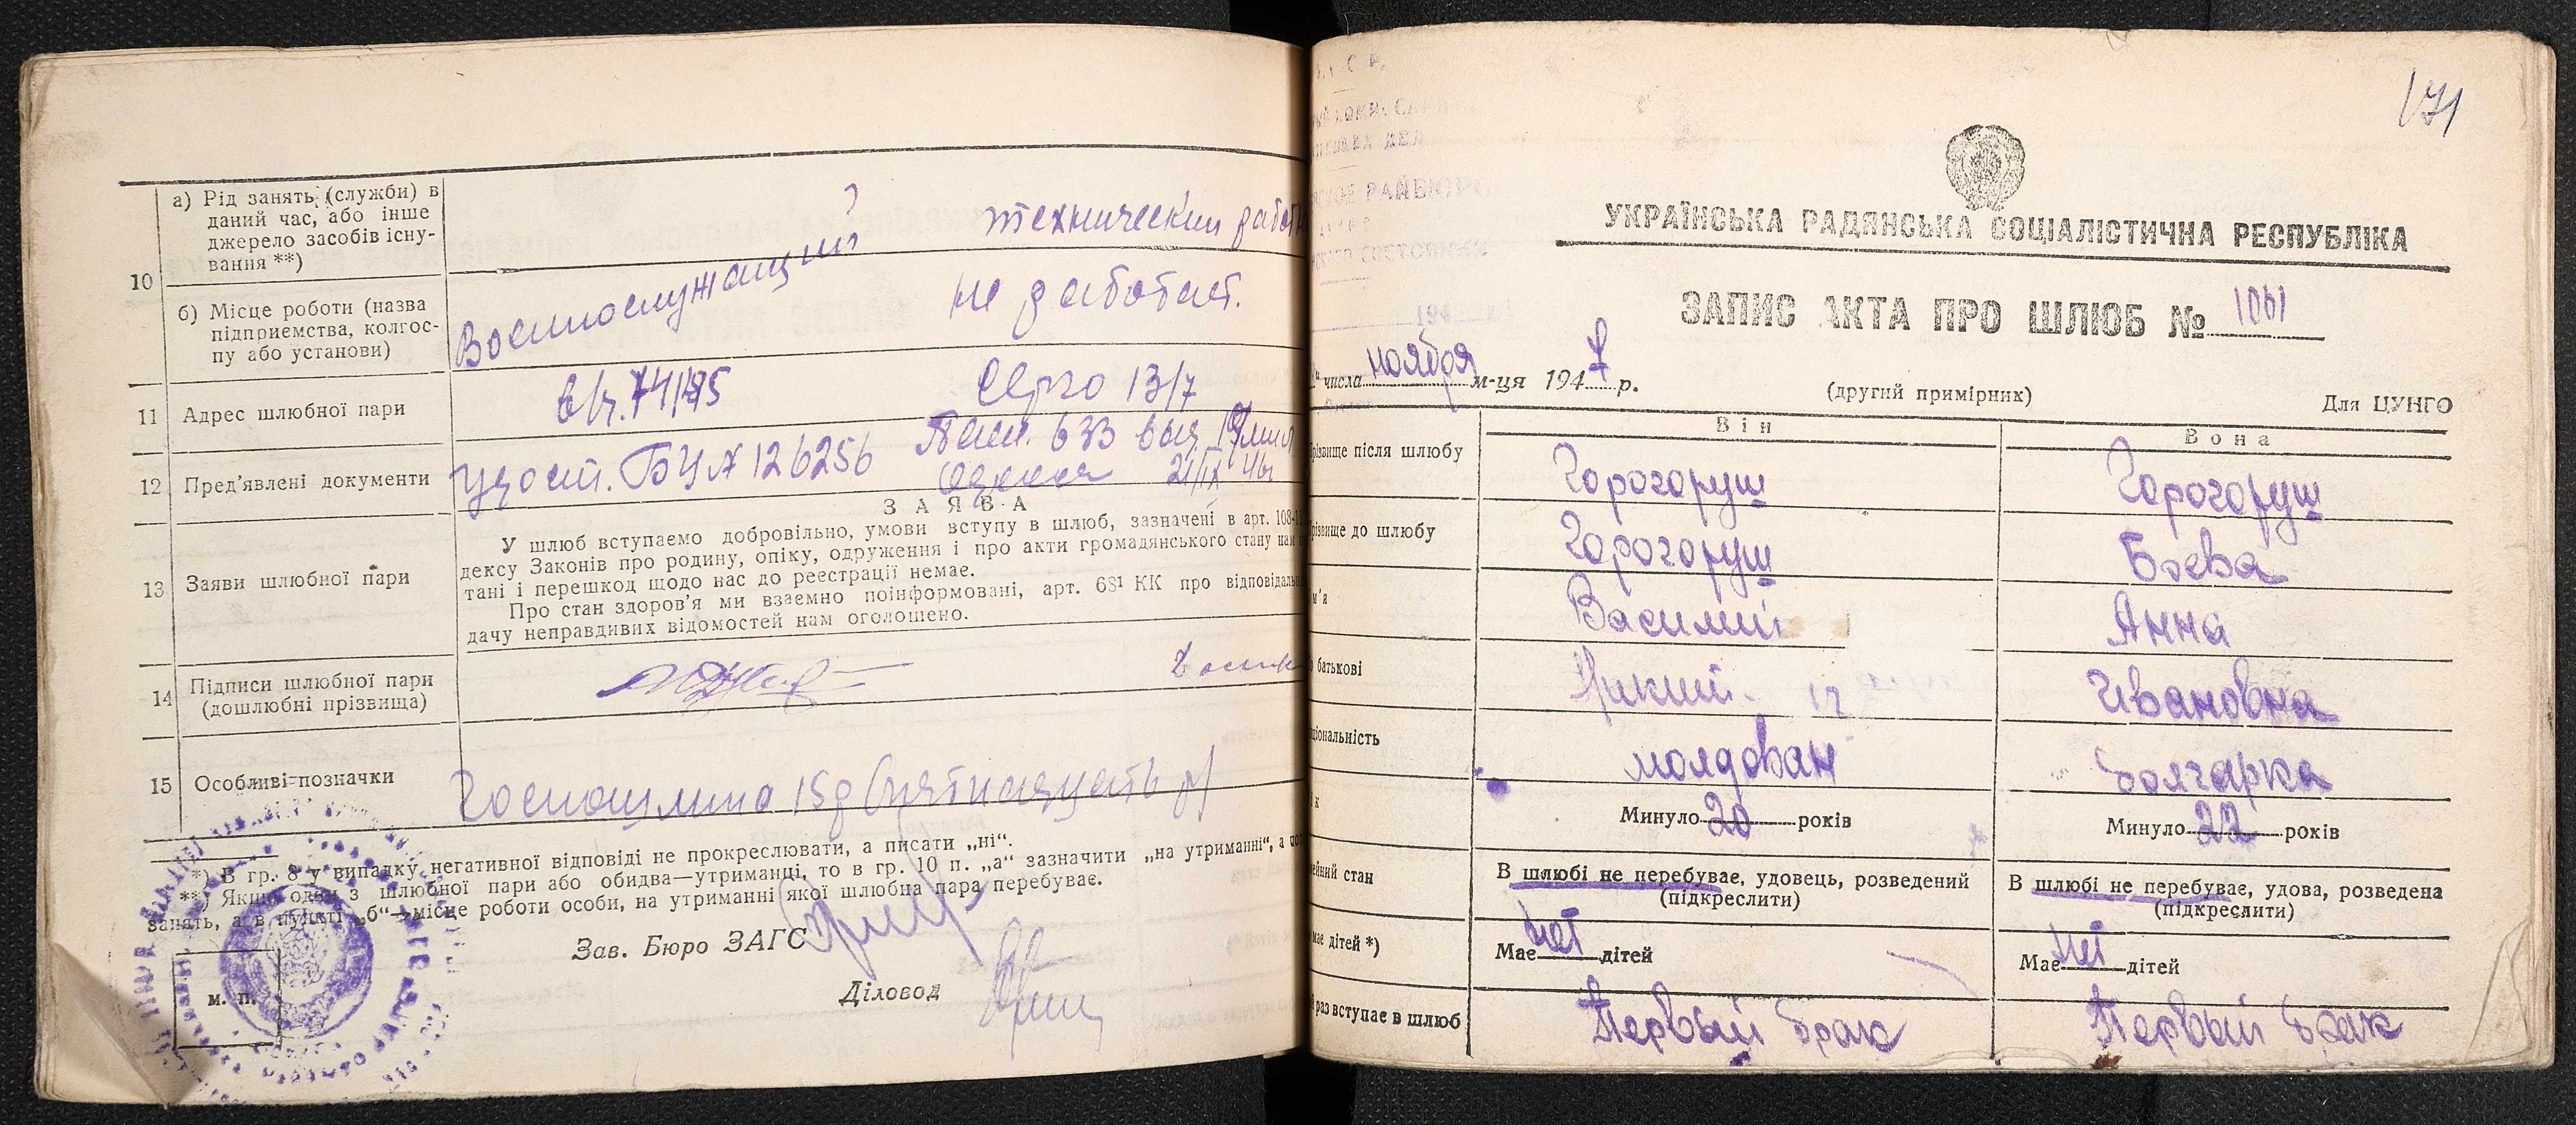 10
а) Рід занять (служби) в
даний час, або інше
джерело засобів існу-
вання **)
технический
б) Місце роботи (назва
підприємства, колгос-
пу або установи)
Военнослужащий
не работает.
11 Адрес шлюбної пари
в/ч. 74185
Серго 13/7
12 Пред'явлені документи
удост. БУ № 126256
Пасп. 633 выд.
Одесса
ЗАЯВА
13 Заяви шлюбної пари
У шлюб вступаємо добровільно, умови вступу в шлюб, зазначені в арт. 108-
дексу Законів про родину, опіку, одруження і про акти громадянського стану нам
тані і перешкод щодо нас до реєстрації немає.
Про стан здоров'я ми взаємно поінформовані, арт. 68¹ КК про відповідаль
дачу неправдивих відомостей нам оголошено.
14 Підписи шлюбної пари
(дошлюбні прізвища)
15 Особливі позначки
Госпошлина 15 р (пятнадцать р)
*) В гр. 8 у випадку негативної відповіді не прокреслювати, а писати „ні“.
**) Якщо один з шлюбної пари або обидва—утриманці, то в гр. 10 п. „а“ зазначити „на утриманні“, а
занять, а в пункті „б“—місце роботи особи, на утриманні якої шлюбна пара перебуває.
Зав. Бюро ЗАГС
Діловод
м. п.
171
УКРАЇНСЬКА РАДЯНСЬКА СОЦІАЛІСТИЧНА РЕСПУБЛІКА
ЗАПИС АКТА ПРО ШЛЮБ № 1061
числа ноября м-ця 194 р.
(другий примірник)
Для ЦУНГО
Він
Вона
різвище після шлюбу
Горогоруш
Горогоруш
різвище до шлюбу
Горогоруш
Боева
м'я
Василий
Анна
батькові
Ивановна
ціональність
молдован
болгарка
Минуло 20 років
Минуло 22 років
ейний стан
В шлюбі не перебуває, удовець, розведений
(підкреслити)
В шлюбі не перебуває, удова, розведена
(підкреслити)
має дітей *)
Має нет дітей
Має нет дітей
раз вступає в шлюб
Первый брак
Первый брак